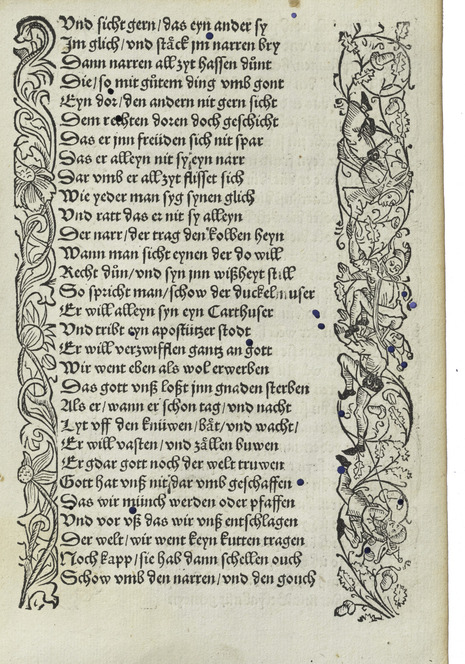 Vnd sicht gern/das eyn ander sy
Im glich/vnd stäck jm narren bry
Dann narren all zyt hassen důnt
Die/so mit gůtem ding vmb gont
Eyn dor/den andern nit gern sicht
Dem rechten doren doch geschicht
Das er jnn freüden sich nit spar
Das er alleyn nit sy eyn narr
Dar vmb er all zyt flisset sich
Wie yeder man syg synen glich
Vnd ratt das er nit sy alleyn
Der narr/der trag den kolben heyn
Wann man sicht eynen der do will
Recht důn/vnd syn jnn wißheyt still
So spricht man/schow der duckelmuser
Er will alleyn syn eyn Carthuser
Vnd tribt eyn apostützer stodt
Er will verzwifflen gantz an gott
Wir went eben als wol erwerben
Das gott vnß loßt jnn gnaden sterben
Als er/wann er schon tag/vnd nacht
Lyt vff den knüwen/bät/vnd wacht/
Er will vasten/vnd zällen buwen
Er gdar gott noch der welt truwen
Gott hat vnß nit dar vmb geschaffen
Das wir münch werden oder pfaffen
Vnd vor vß das wir vnß entschlagen
Der welt/wir went keyn kutten tragen
Noch kapp/sie hab dann schellen ouch
Schow vmb den narren/vnd den gouch